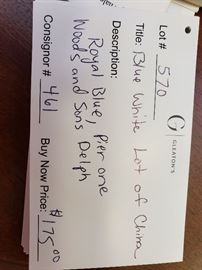 Lot # 570
G
GLEATON'S
Title: Blue White Lot of China
Description:
Royal Blue, Pier one
Woods and Sons Delph
Consignor # 461
Buy Now Price: $175.00